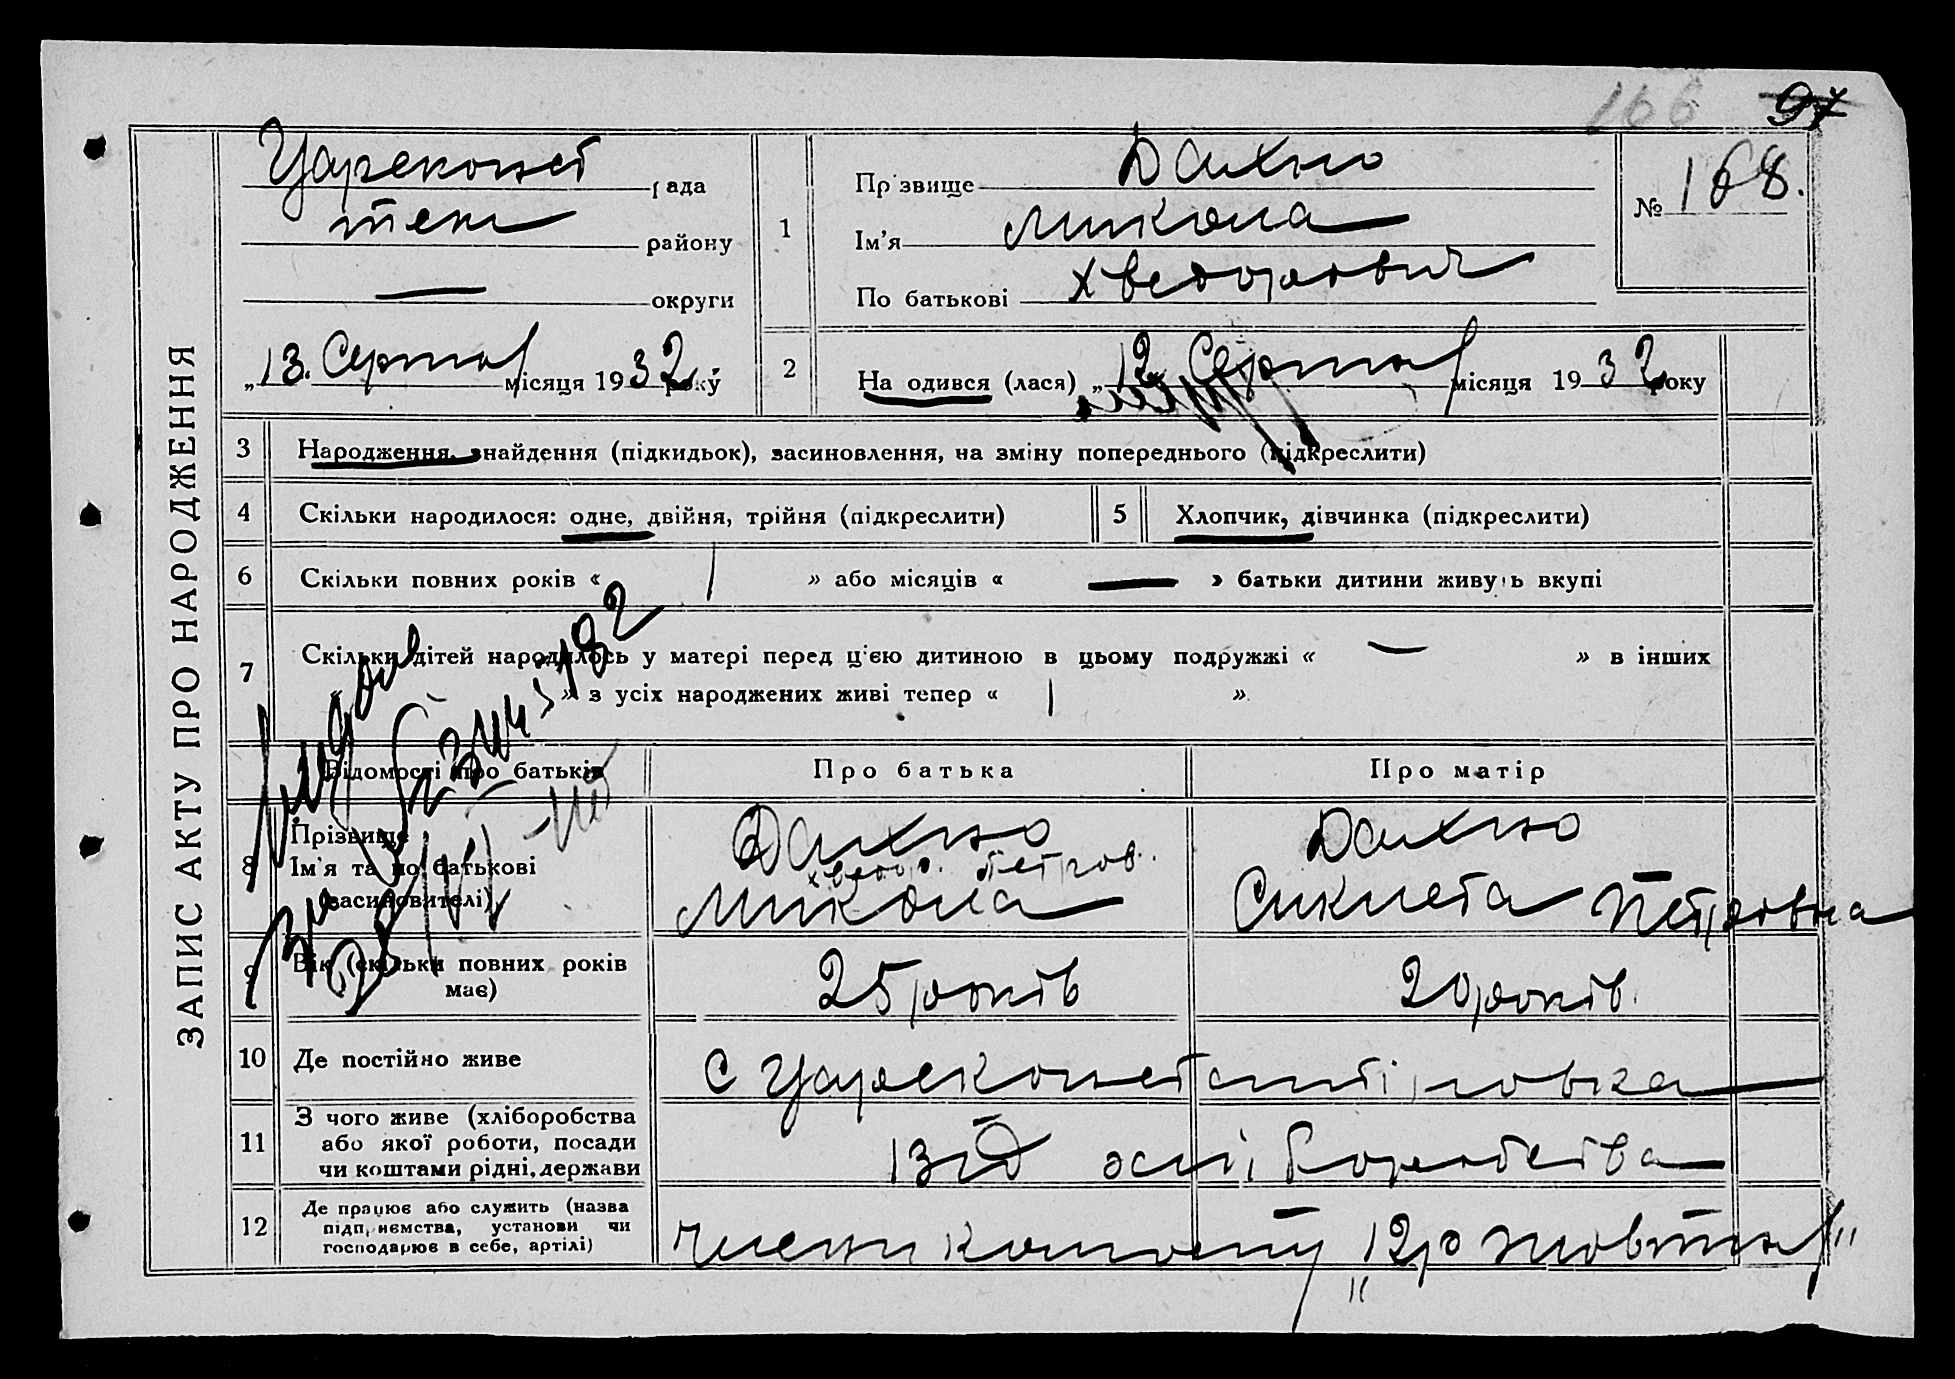 166 97
ЗАПИС АКТУ ПРО НАРОДЖЕННЯ
Цареконст рада
тен району
— округи
„13. Серпня місяця 1932 року
1
Прізвище Дахно
Ім'я Микола
По батькові Хведорович
№ 168.
2
На одився (лася) „12 Серпня місяця 1932 року
3 Народження, знайдення (підкидьок), засиновлення, на зміну попереднього (підкреслити)
4 Скільки народилося: одне, двійня, трійня (підкреслити)
5 Хлопчик, дівчинка (підкреслити)
6 Скільки повних років « 1 » або місяців « — » батьки дитини живуть вкупі
7 Скільки дітей народилось у матері перед цією дитиною в цьому подружжі « — » в інших
» з усіх народжених живі тепер « 1 ».
Відомості про батьків Про батька Про матір
8 Прізвище
Ім'я та по батькові
(засиновителі)
Дахно
Хведор. Петров.
Микола
Дахно
Сиклета Петровна
9 Вік (скільки повних років має)
25 років
20 років.
10 Де постійно живе
с Цареконстантіновка
11 З чого живе (хліборобства
або якої роботи, посади
чи коштами рідні, держави
із хліборобства
12 Де працює або служить (назва
підприємства, установи чи
господарює в себе, артілі)
члени колгоспу „12 р Жовтня"